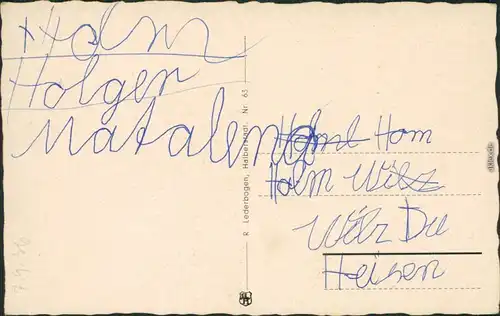 Holm
Holger
Matalend
R. Lederbogen, Halberstadt, Nr. 65
Hom
Holm Wilz
Wilz Du
Heisen
7.9.36